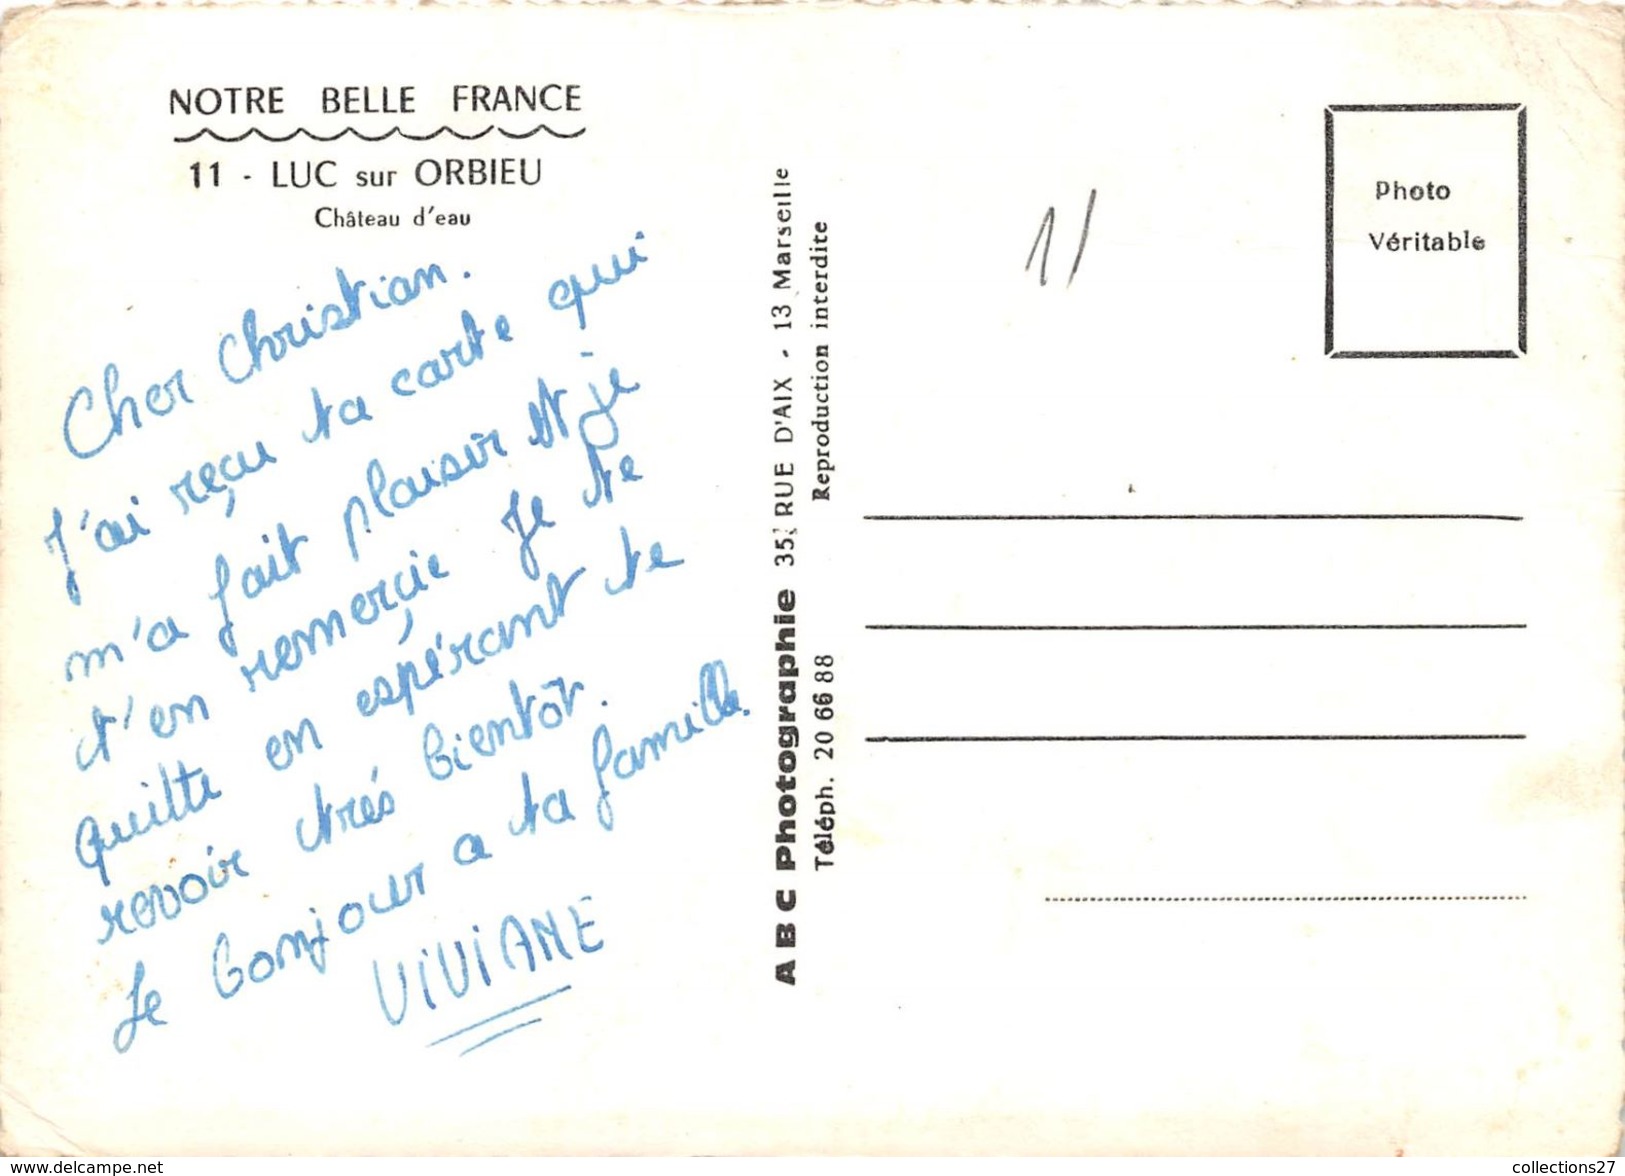 NOTRE BELLE FRANCE
11 - LUC sur ORBIEU
Château d'eau
Cher Christian.
J'ai reçu ta carte qui
m'a fait plaisir et je
t'en remerçie Je te
quitte en espérant te
revoir trés bientôt.
Le bonjour a ta famille.
VIVIANE
A B C Photographie 35, RUE D'AIX - 13 Marseille
Téléph. 20 66 88 Reproduction interdite
11
Photo
Véritable
www.delcampe.net
collections27